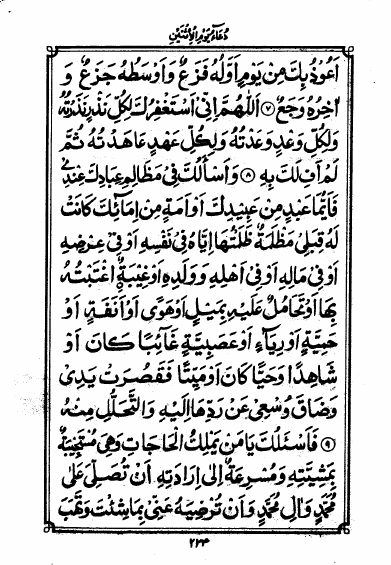 دُعَاءُ يَوْمِ الْاِثْنَيْنِ
اَعُوْذُ بِكَ مِنْ يَوْمٍ اَوَّلُهٗ فَزَعٌ وَاَوْسَطُهٗ جَزَعٌ وَ
اٰخِرُهٗ وَجَعٌ ۷ اَللّٰهُمَّ اِنِّىْ اَسْتَغْفِرُكَ لِكُلِّ نَذْرٍ نَذَرْتُهٗ
وَلِكُلِّ وَعْدٍ وَعَدْتُهٗ وَلِكُلِّ عَهْدٍ عَاهَدْتُهٗ ثُمَّ
لَمْ اَفِ لَكَ بِهٖ ۸ وَاَسْاَلُكَ فِىْ مَظَالِمِ عِبَادِكَ عِنْدِىْ
فَاَيُّمَا عَبْدٍ مِنْ عَبِيْدِكَ اَوْ اَمَةٍ مِنْ اِمَائِكَ كَانَتْ
لَهٗ قِبَلِىْ مَظْلِمَةٌ ظَلَمْتُهَا اِيَّاهُ فِىْ نَفْسِهٖ اَوْ فِىْ عِرْضِهٖ
اَوْ فِىْ مَالِهٖ اَوْ فِىْ اَهْلِهٖ وَوَلَدِهٖ اَوْ غِيْبَةٌ اغْتَبْتُهٗ
بِهَا اَوْ تَحَامُلٌ عَلَيْهِ بِمَيْلٍ اَوْ هَوًى اَوْ اَنَفَةٍ اَوْ
حَمِيَّةٍ اَوْ رِيَاءٍ اَوْ عَصَبِيَّةٍ غَائِبًا كَانَ اَوْ
شَاهِدًا وَحَيًّا كَانَ اَوْ مَيِّتًا فَقَصُرَتْ يَدِىْ
وَضَاقَ وُسْعِىْ عَنْ رَدِّهَا اِلَيْهِ وَالتَّحَلُّلِ مِنْهُ
۹ فَاَسْئَلُكَ يَا مَنْ يَمْلِكُ الْحَاجَاتِ وَهِىَ مُسْتَجِيْبَةٌ
بِمَشِيَّتِهٖ وَمُسْرِعَةٌ اِلٰى اِرَادَتِهٖ اَنْ تُصَلِّىَ عَلٰى
مُحَمَّدٍ وَاٰلِ مُحَمَّدٍ وَاَنْ تُرْضِيَهٗ عَنِّىْ بِمَا شِئْتَ وَتَهَبَ
۲۲۳